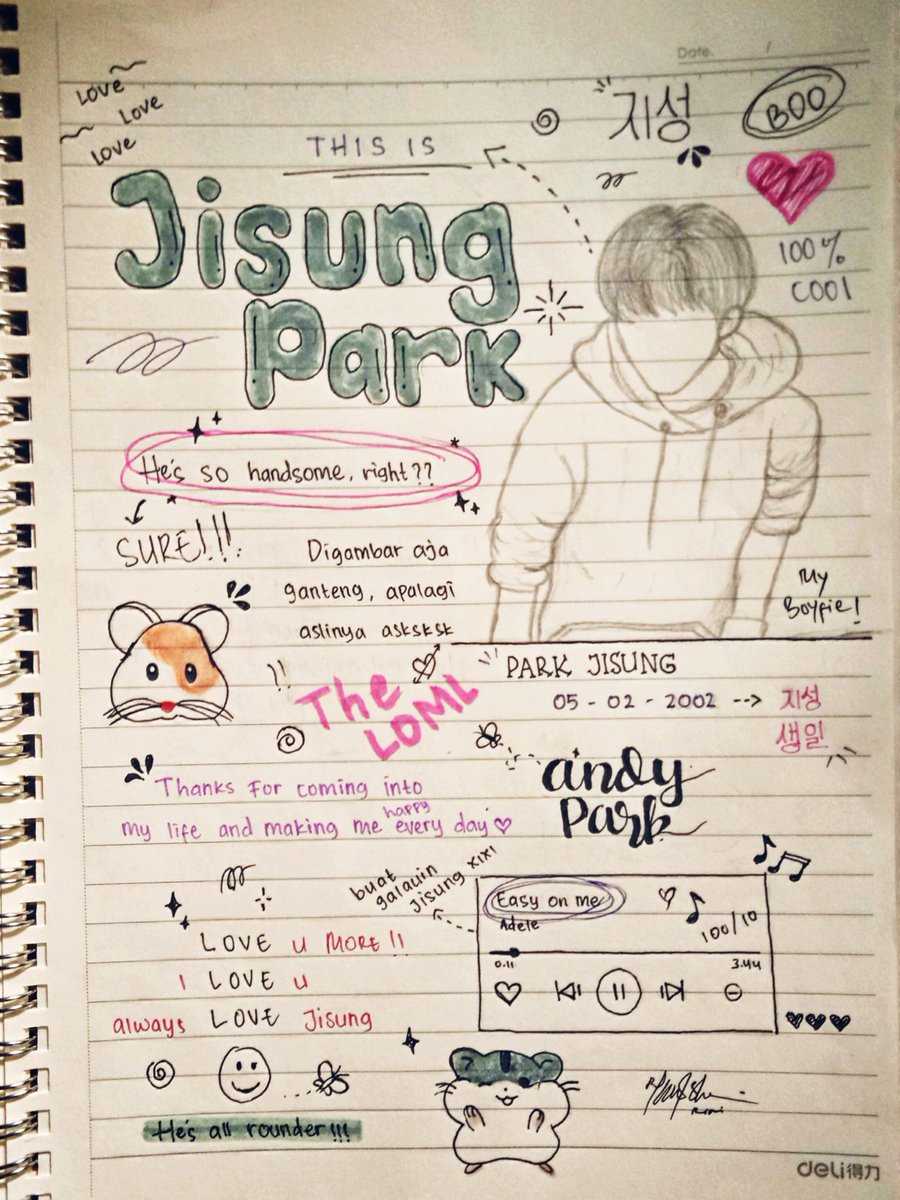 Date. /
Love
Love
Love
THIS IS
지성
BOO
Jisung
Park
100%
COOl
He's so handsome, right??
SURE!!!
Digambar aja
ganteng, apalagi
aslinya asksksk
My
Boyfie!
The
LOML
PARK JISUNG
05 - 02 - 2002 --> 지성
생일
Thanks For coming into
my life and making me happy every day
andy
Park
buat
galauin
Jisung xixi
Easy on me
Adele
100/10
0.11
3.44
LOVE u MORE!!
I LOVE u
always LOVE Jisung
He's all rounder!!!
deli得力